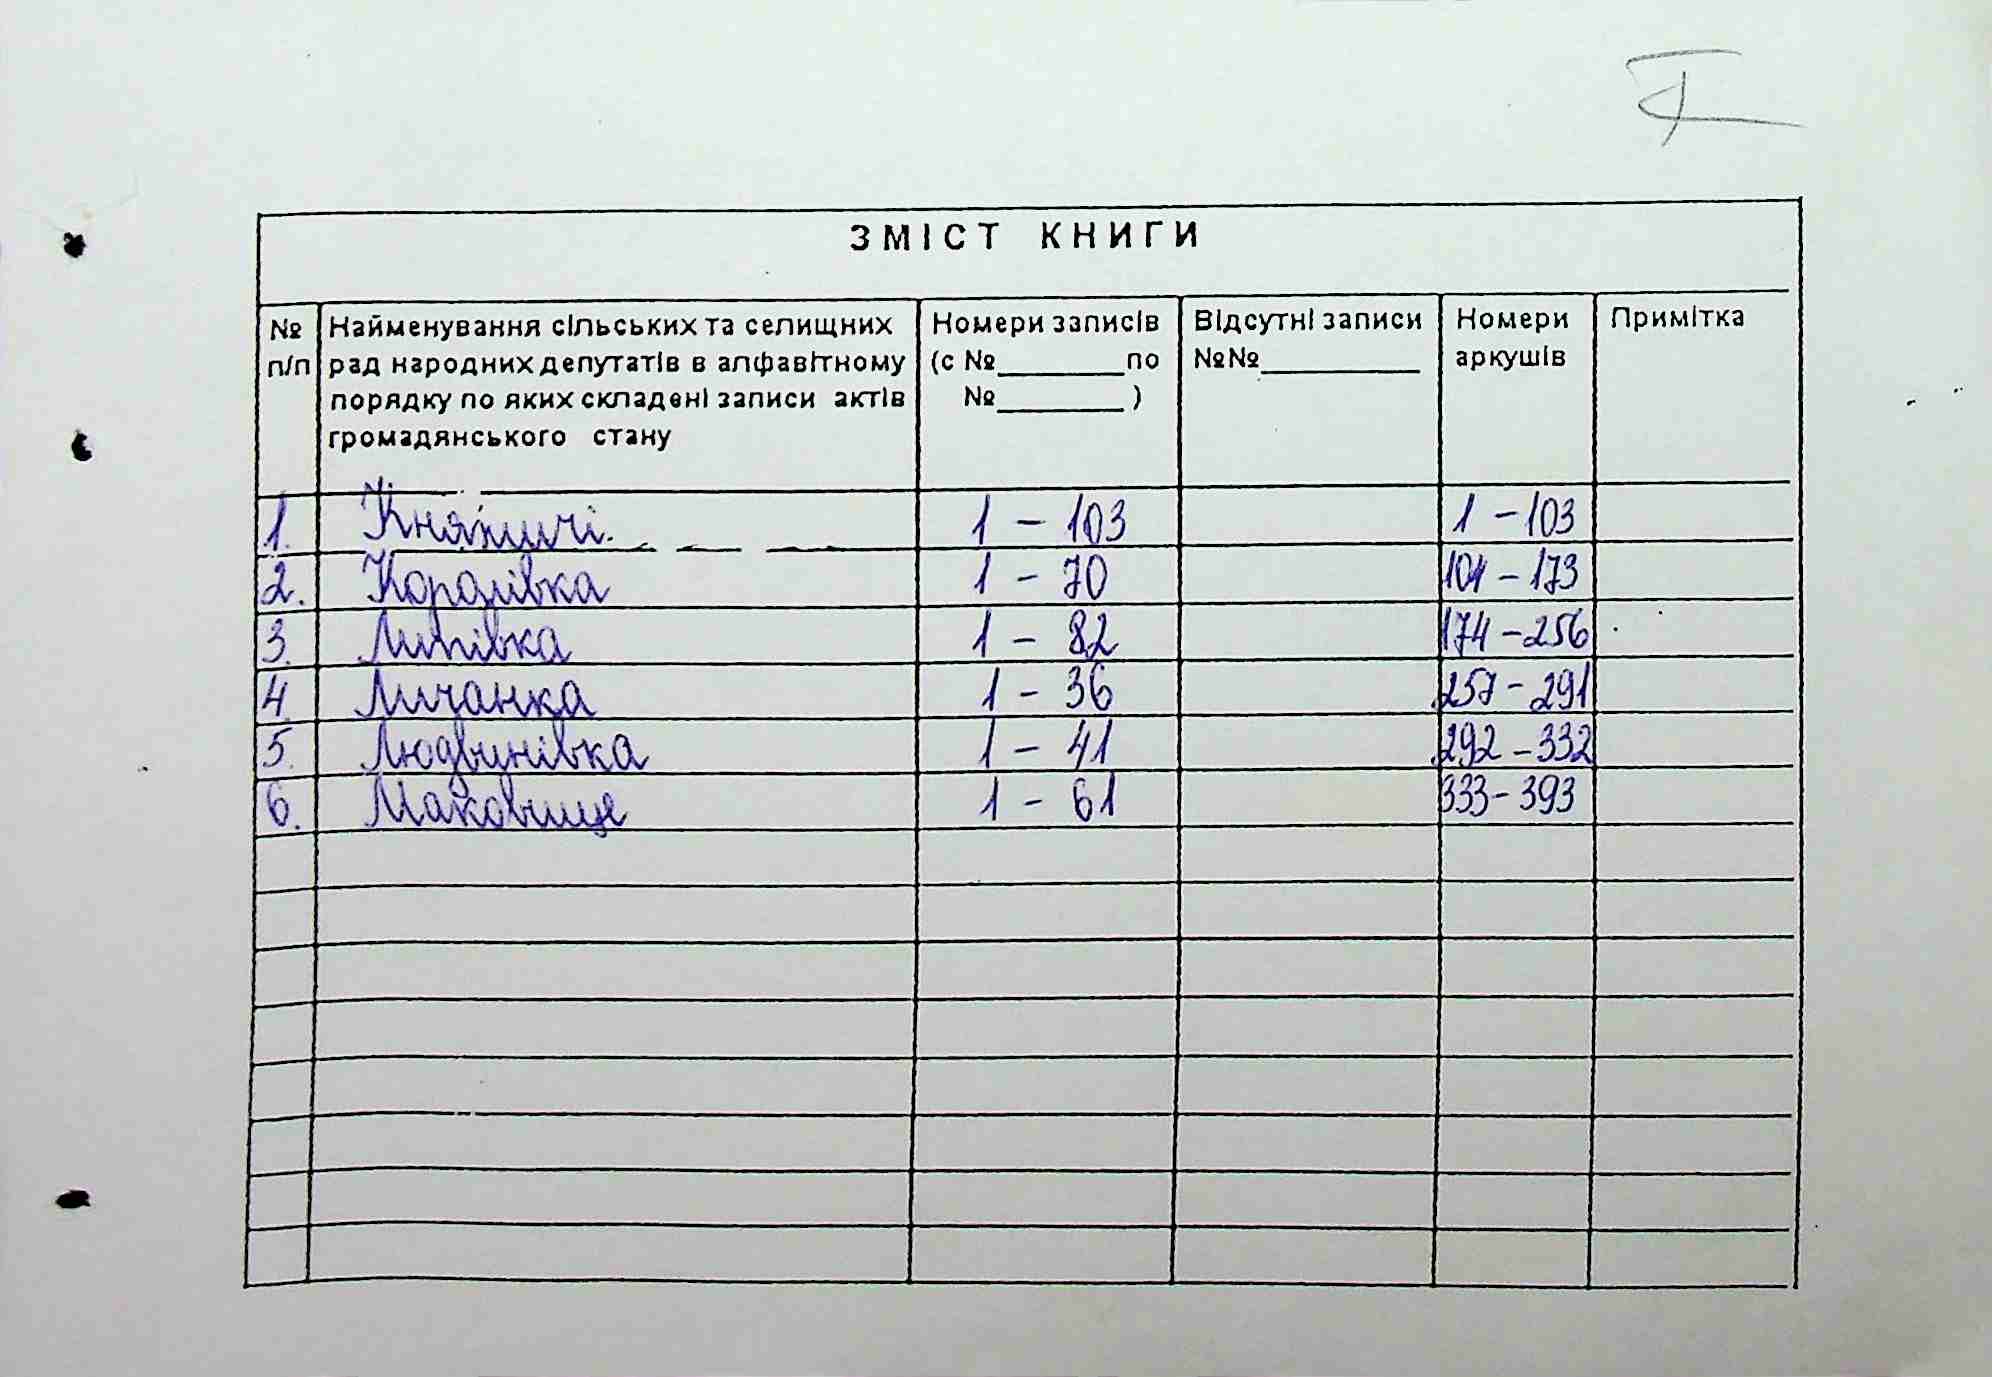 ЗМІСТ КНИГИ
№ п/п Найменування сільських та селищних рад народних депутатів в алфавітному порядку по яких складені записи актів громадянського стану Номери записів (с №________по №________) Відсутні записи №№__________ Номери аркушів Примітка
1. Княжичі. 1 – 103 1 – 103
2. Королівка 1 – 70 104 – 173
3. Липівка 1 – 82 174 – 256
4 Личанка 1 – 36 257 – 291
5. Людвинівка 1 – 41 292 – 332
6. Маковище 1 – 61 333 – 393